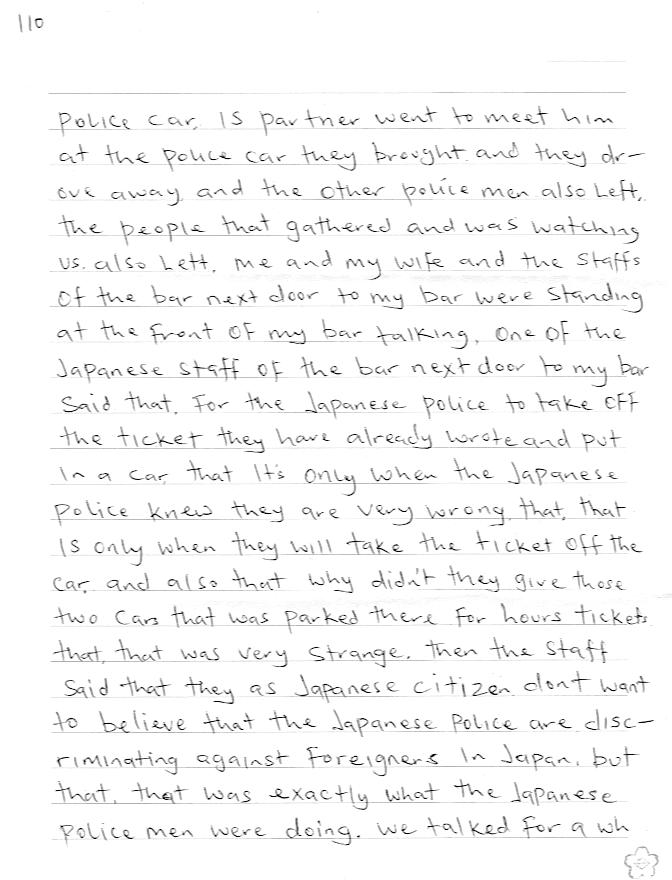 110
police car, is partner went to meet him
at the police car they brought and they dr-
ove away, and the other police men also left,
the people that gathered and was watching
us. also left, me and my wife and the staffs
of the bar next door to my bar were standing
at the front of my bar talking, one of the
Japanese staff of the bar next door to my bar
said that, for the Japanese police to take off
the ticket they have already wrote and put
in a car, that it's only when the Japanese
police knew they are very wrong, that, that
is only when they will take the ticket off the
car, and also that why didn't they give those
two cars that was parked there for hours tickets
that, that was very strange. then the staff
said that they as Japanese citizen, dont want
to believe that the Japanese police are disc-
riminating against foreigners in Japan, but
that, that was exactly what the Japanese
police men were doing. we talked for a wh